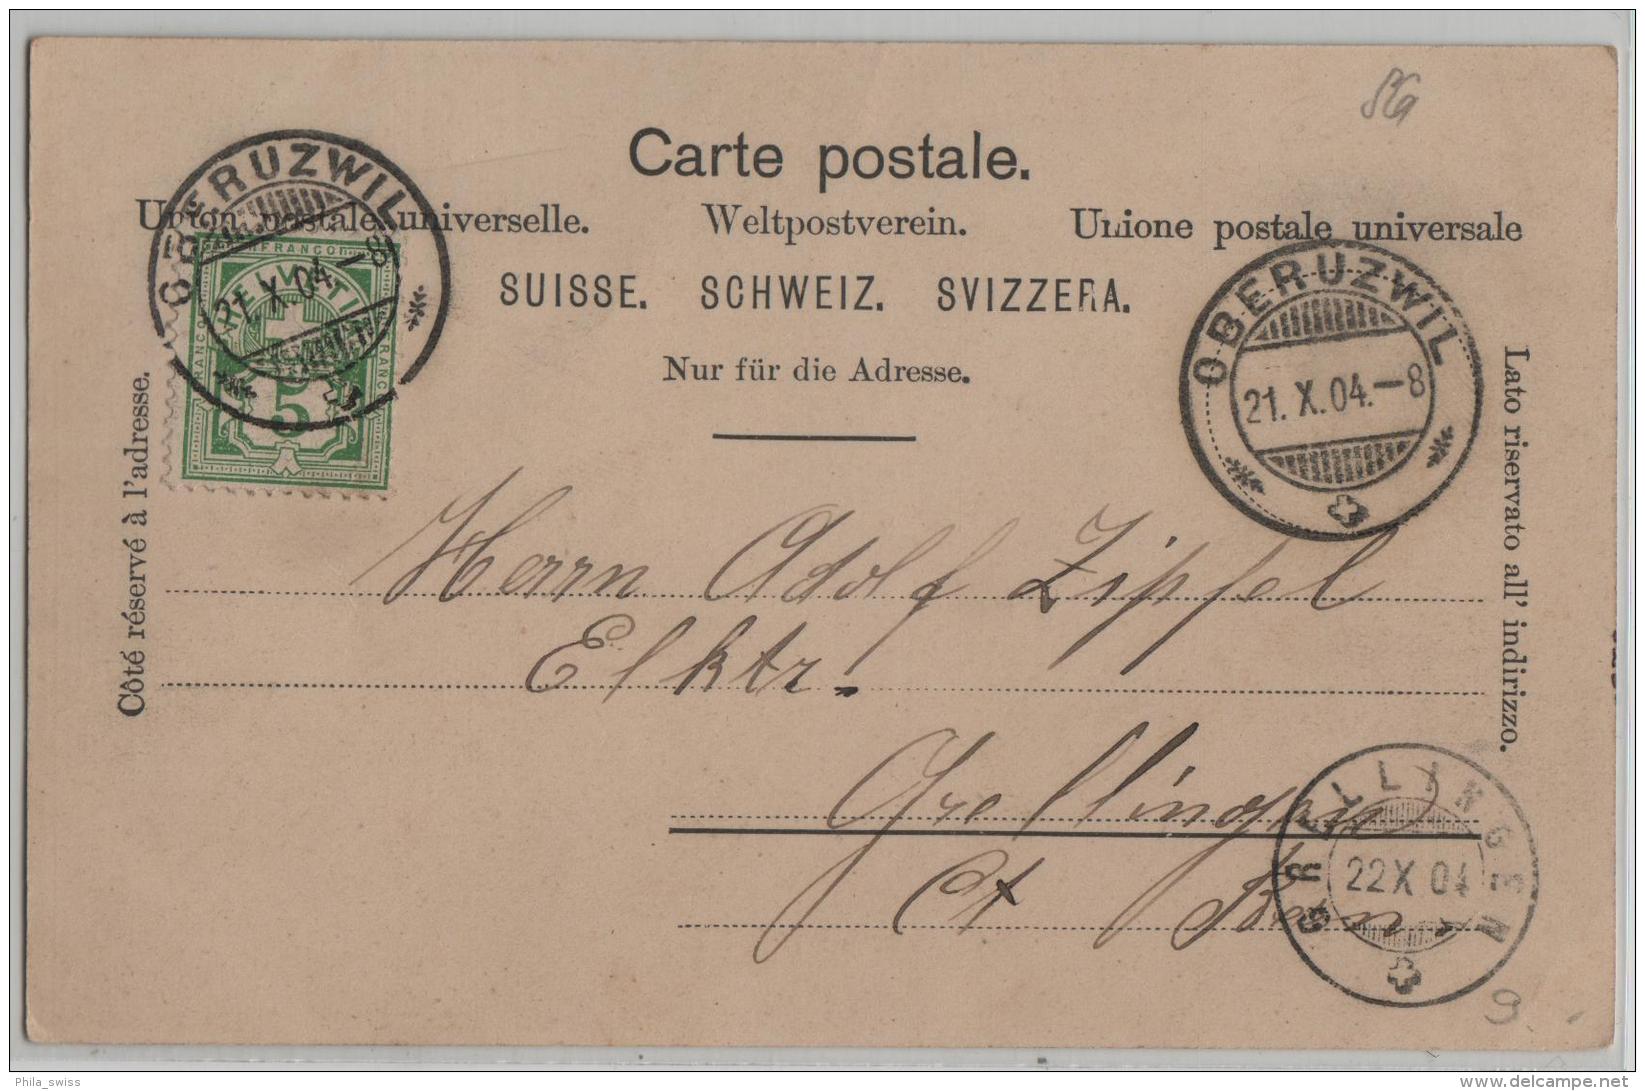 Carte postale.
Union postale universelle. Weltpostverein. Unione postale universale
SUISSE. SCHWEIZ. SVIZZERA.
Nur für die Adresse.
Côté réservé à l'adresse.
Lato riservato all' indirizzo.
OBERUZWIL
21.X.04.–8
FRANCO
HELVETIA
FRANCO
FRANCO
5
OBERUZWIL
21.X.04.–8
Herrn Adolf Zipfel
Elktr.
Grellingen
Ct Bern
GRELLINGEN
22 X 04
9
Phila_swiss
delcampe.net